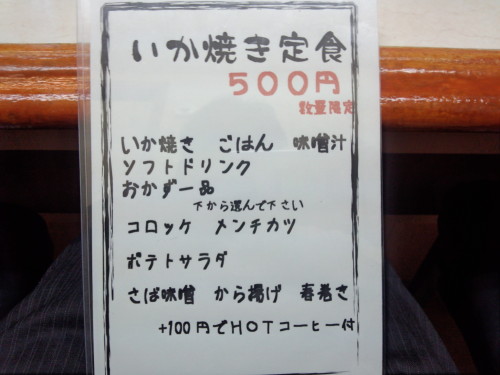 いか焼き定食
500円
数量限定
いか焼き ごはん 味噌汁
ソフトドリンク
おかず一品
下から選んで下さい
コロッケ メンチカツ
ポテトサラダ
さば味噌 から揚げ 春巻き
+100円でHOTコーヒー付